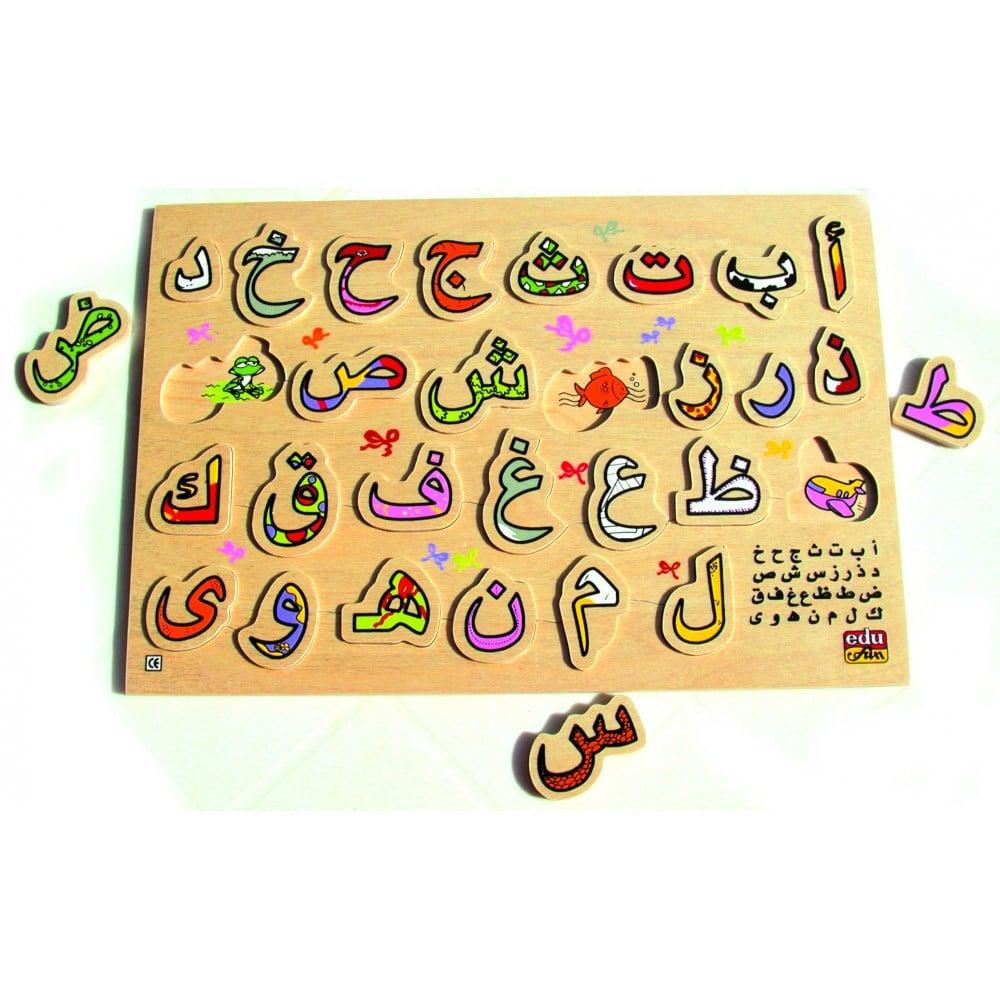 أ ب ت ث ج ح خ د
ذ ر ز ش ص
ظ ع غ ف ق ك
ل م ن ه و ى
أ ب ت ث ج ح خ
د ذ ر ز س ش ص
ض ط ظ ع غ ف ق
ك ل م ن ه و ى
edu
fun
CE
ض
ط
س